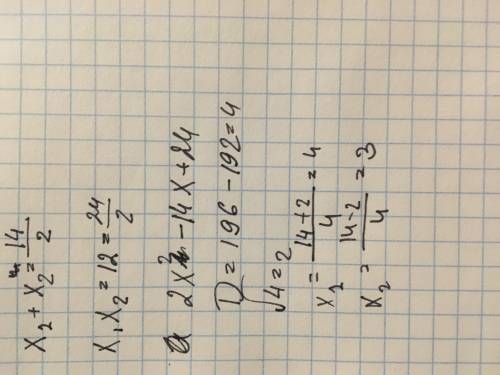 x₂ + x₂ = 14/2
x₁x₂ = 12 = 24/2
2x² - 14x + 24
D = 196 - 192 = 4
√4 = 2
x₂ = (14+2)/4 = 4
x₂ = (14-2)/4 = 3